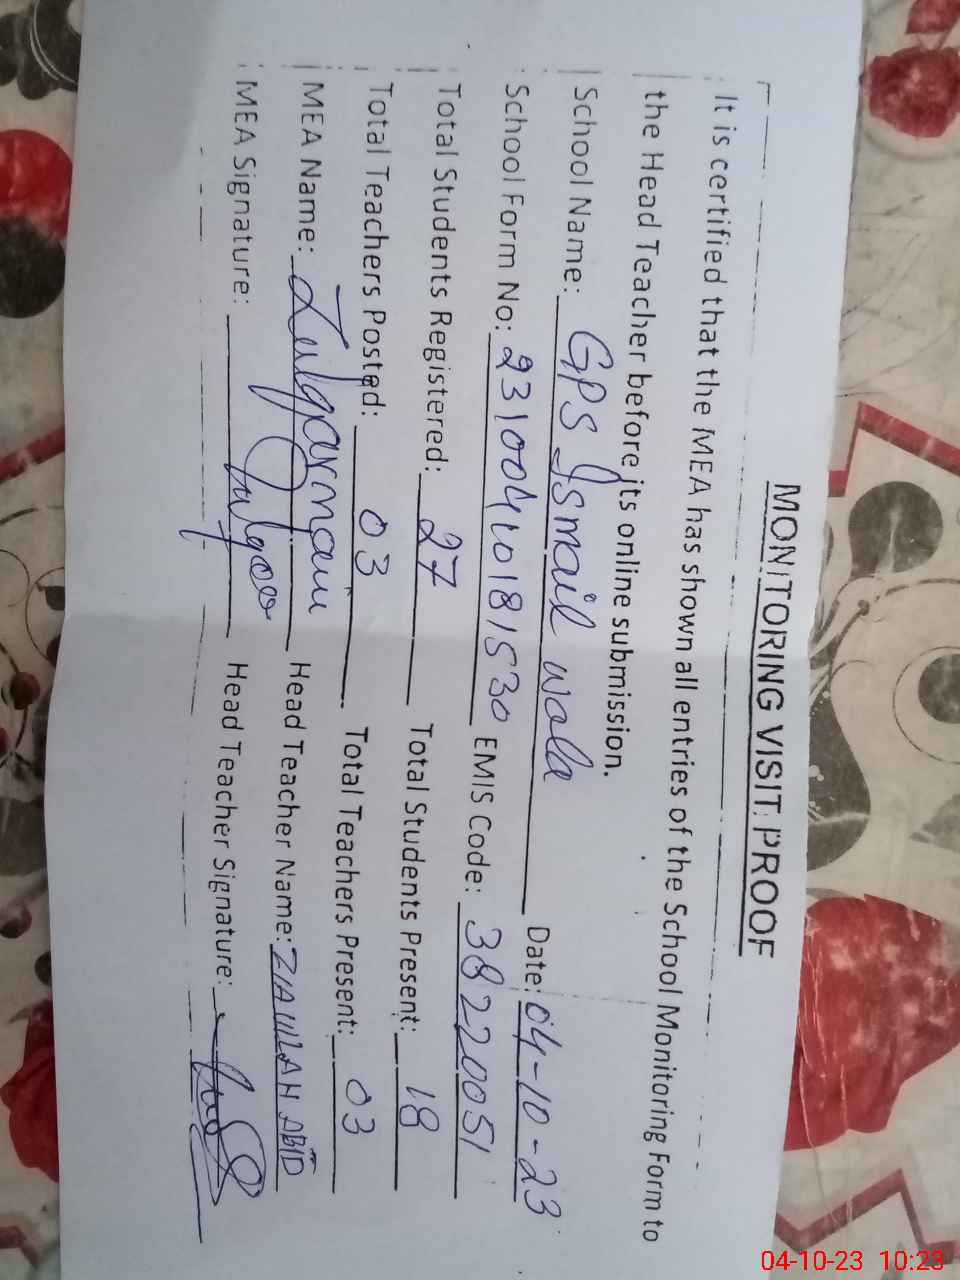 MONITORING VISIT PROOF
It is certified that the MEA has shown all entries of the School Monitoring Form to
the Head Teacher before its online submission.
School Name: GPS Ismail wala Date: 04-10-23
School Form No: 23100410181530 EMIS Code: 38220051
Total Students Registered: 27 Total Students Present: 18
Total Teachers Posted: 03 Total Teachers Present: 03
MEA Name: Zulqarnain Head Teacher Name: ZIAULLAH ABID
MEA Signature: Zulqar Head Teacher Signature:
04-10-23 10:23